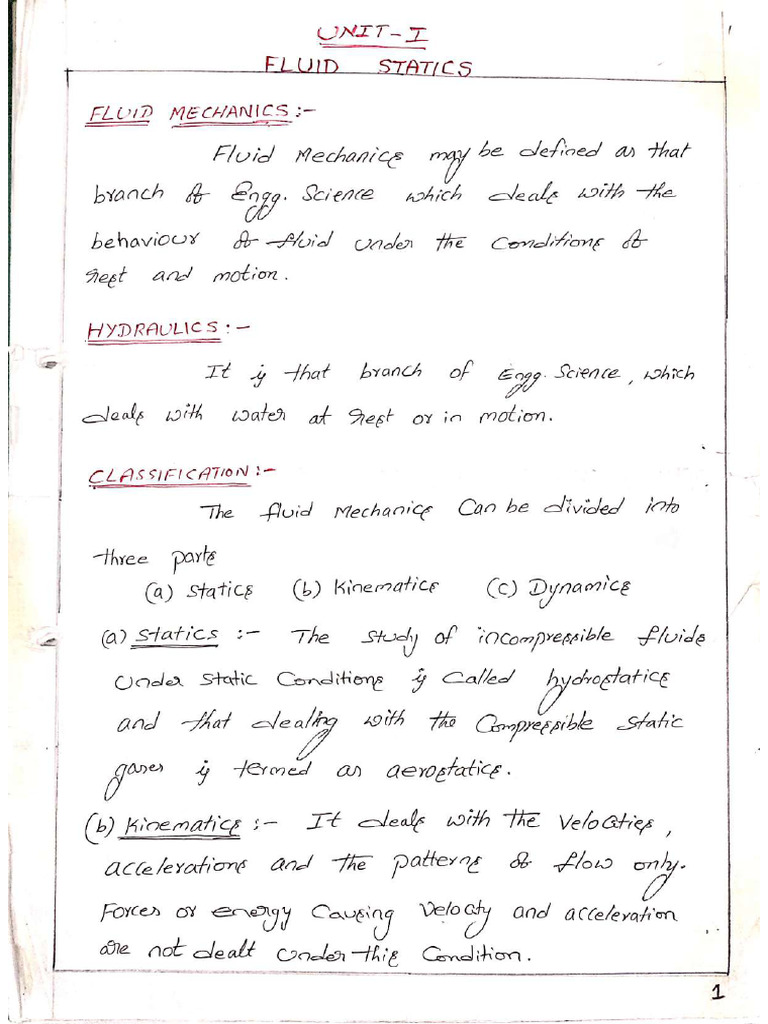 UNIT-I
FLUID STATICS
FLUID MECHANICS:-
Fluid Mechanics may be defined as that
branch of Engg. Science which deals with the
behaviour of fluid under the Conditions of
rest and motion.
HYDRAULICS:-
It is that branch of Engg. Science, which
deals with water at rest or in motion.
CLASSIFICATION:-
The fluid Mechanics Can be divided into
three parts
(a) Statics (b) Kinematics (c) Dynamics
(a) Statics :- The study of incompressible fluids
under static Conditions is Called hydrostatics
and that dealing with the Compressible static
gases is termed as aerostatics.
(b) Kinematics :- It deals with the Velocities,
accelerations and the patterns of flow only.
Forces or energy Causing Velocity and acceleration
are not dealt under this Condition.
1